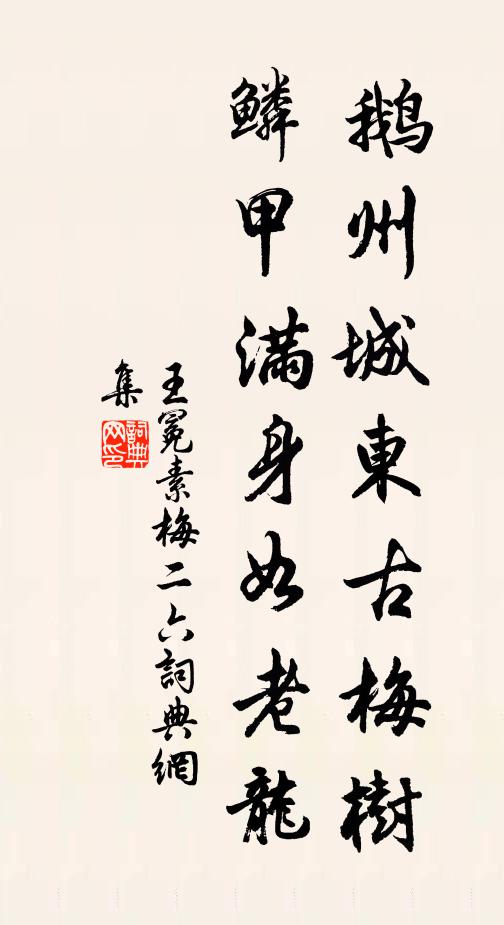 鵝州城東古梅樹
鱗甲滿身如老龍
王冕素梅二六詞典網
集
詞典
网印